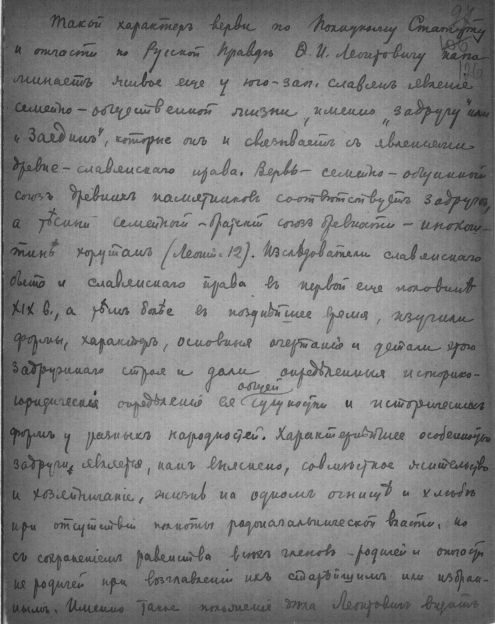 Такой характеръ верви по Полицкому Статуту
и отчасти по Русской Правдѣ Ѳ. И. Леонтовичу напо
минаетъ живое еще у юго-зап. славянъ явленіе
семейно-общественной жизни, именно „задругу" или
„Заедину", которыя онъ и связываетъ съ явленіями
древне-славянскаго права. Вервь-семейно-общинный
союзъ древнихъ памятниковъ соотвѣтствуетъ задругѣ,
а тѣсный семейный-братскій союзъ древности-инокош-
тинѣ хорутанъ (Леонт. 12). Изслѣдователи славянскаго
быта и славянскаго права въ первой еще половинѣ
XIX в., а тѣмъ болѣе въ позднѣйшее время, изучили
формы, характеръ, основныя очертанія и детали этого
задружнаго строя и дали опредѣленныя историко-
юридическія опредѣленія ея общей сущности и историческихъ
формъ у разныхъ народностей. Характернѣйшее особенностью
задруги, является, какъ выяснено, совмѣстное жительство
и хозяйничанье, жизнь на одномъ огнищѣ и хлѣбѣ
при отсутствіи полноты родоначальнической власти, но
съ сохраненіемъ равенства всѣхъ членовъ-родичей и отчасти
не родичей при возглавленіи ихъ старѣйшимъ или избран-
нымъ. Именно такое положеніе дѣла Леонтовичъ видитъ